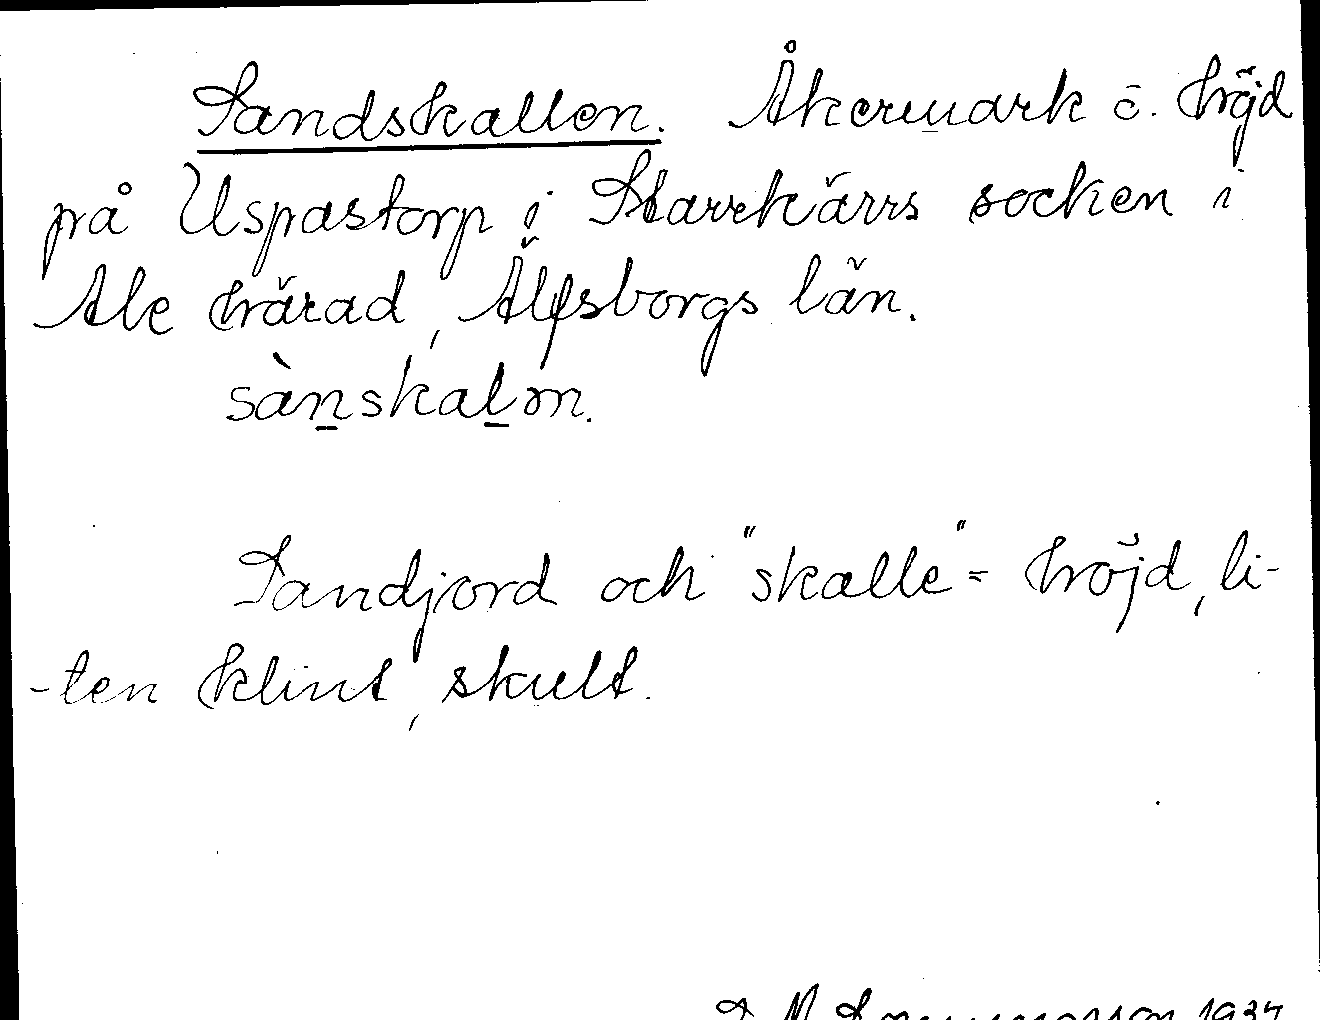 Sandskallen. Åkermark o. höjd
på Uspastorp i Starrkärrs socken i
Ale härad, Älfsborgs län.
sànskalən.
Sandjord och "skalle" = höjd, li-
-ten klint, skult.
1934